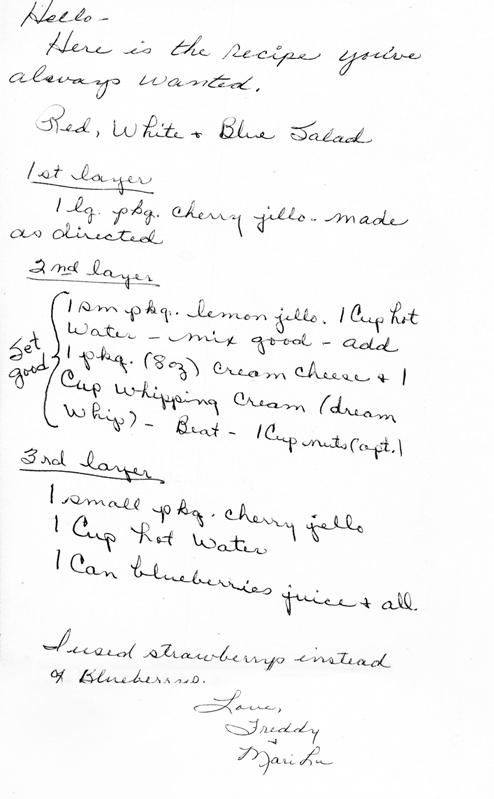 Hello-
Here is the recipe you've
always wanted.
Red, White + Blue Salad
1st layer
1 lg. pkg. cherry jillo - made
as directed
2nd layer
1 sm pkg. lemon jello. 1 Cup hot
Water - mix good - add
Set
good
1 pkg. (8oz) cream cheese + 1
Cup whipping cream (dream
Whip) - Beat - 1 Cup nuts (opt.)
3rd layer
1 small pkg. cherry jello
1 Cup hot Water
1 Can blueberries juice + all.
I used strawberrys instead
of Blueberries.
Love,
Freddy
+
Mari Lu